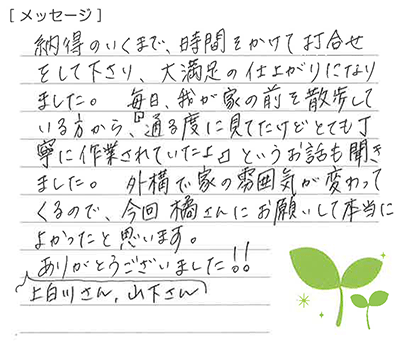 [メッセージ]
納得のいくまで、時間をかけて打合せ
をして下さり、大満足の仕上がりになり
ました。 毎日、我が家の前を散歩して
いる方から、『通る度に見てたけどとても丁
寧に作業されていたよ』というお話も聞き
ました。 外構で家の雰囲気が変わって
くるので、今回 橘さんにお願いして本当に
よかったと思います。
ありがとうございました!!
上白川さん, 山下さん